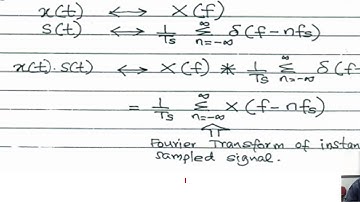 x(t) ⟷ X(f)
s(t) ⟷ 1/Ts ∞Σn=-∞ δ(f-nfs)
x(t).s(t) ⟷ X(f) * 1/Ts ∞Σn=-∞ δ(f-
= 1/Ts ∞Σn=-∞ X(f-nfs)
Fourier Transform of instan
sampled signal.